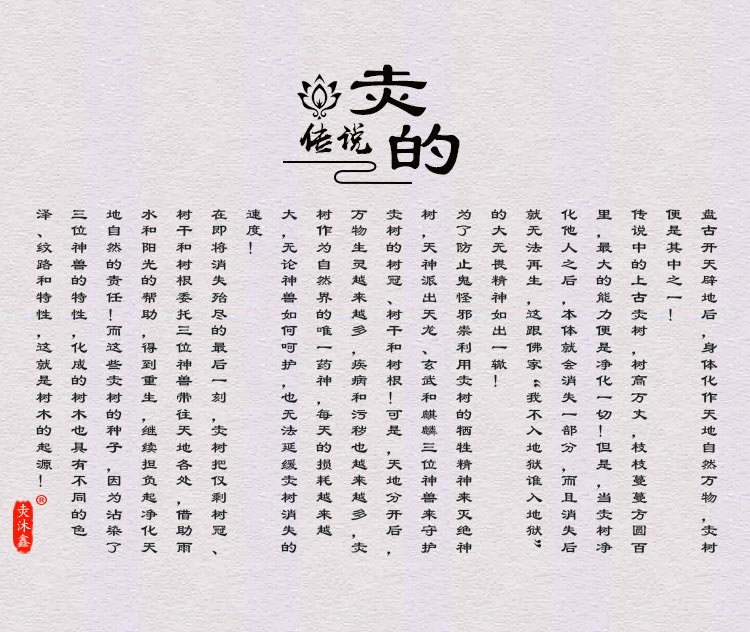 灻的
传说
盘古开天辟地后,身体化作天地自然万物,灻树
便是其中之一!
传说中的上古灻树,树高万丈,枝枝蔓蔓方圆百
里,最大的能力便是净化一切!但是,当灻树净
化他人之后,本体就会消失一部分,而且消失后
就无法再生,这跟佛家“我不入地狱谁入地狱”
的大无畏精神如出一辙!
为了防止鬼怪邪祟利用灻树的牺牲精神来灭绝神
树,天神派出天龙、玄武和麒麟三位神兽来守护
灻树的树冠、树干和树根!可是,天地分开后,
万物生灵越来越多,疾病和污秽也越来越多,灻
树作为自然界的唯一药神,每天的损耗越来越
大,无论神兽如何呵护,也无法延缓灻树消失的
速度!
在即将消失殆尽的最后一刻,灻树把仅剩树冠、
树干和树根委托三位神兽带往天地各处,借助雨
水和阳光的帮助,得到重生,继续担负起净化天
地自然的责任!而这些灻树的种子,因为沾染了
三位神兽的特性,化成的树木也具有不同的色
泽、纹路和特性,这就是树木的起源!
灻沐鑫®